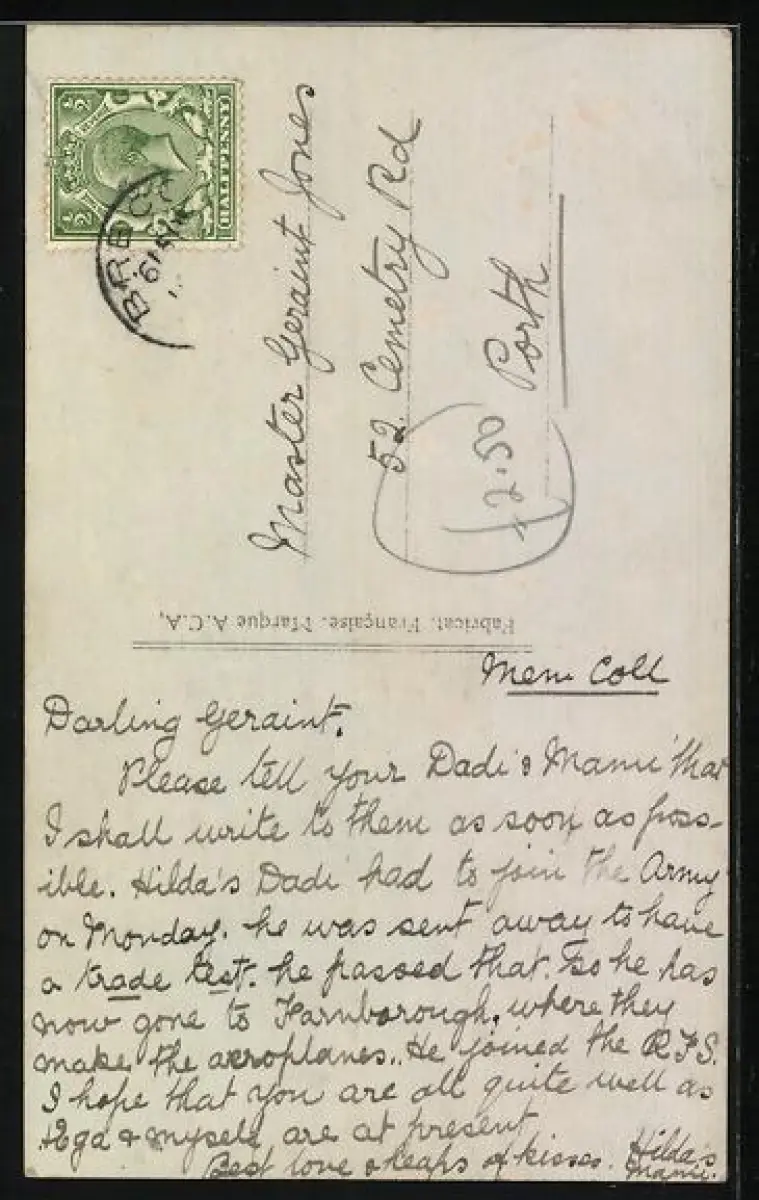 HALFPENNY
½ ½
Master Geraint Jones
52 Cemetry Rd
Porth
2.50
Fabricat. Française. Marque A.C.A,
Mem Coll
Darling Geraint,
Please tell your Dadi & Mami that
I shall write to them as soon as poss-
ible. Hilda's Dadi had to join the Army
on Monday. he was sent away to have
a trade test. he passed that. so he has
now gone to Farnborough, where they
make the aeroplanes.. He joined the R.F.S.
I hope that you are all quite well as
& myself are at present
Best love & heaps of kisses. Hilda's
Mami.